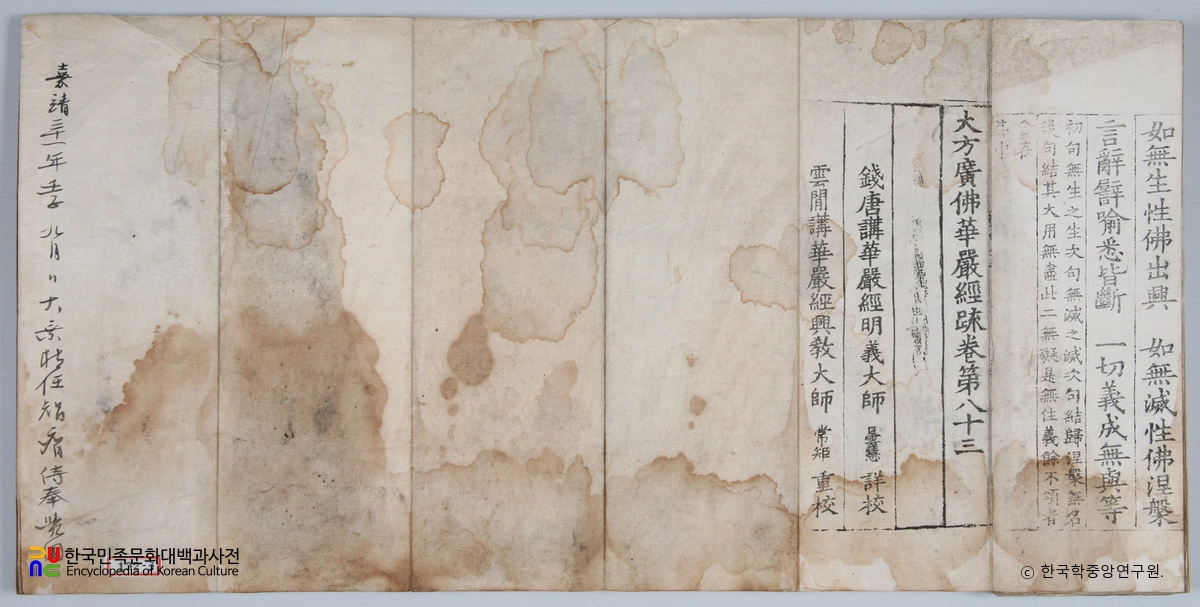 如無生性佛出興 如無滅性佛涅槃
言辭譬喻悉皆斷 一切義成無與等
初句無生之生次句無滅之滅次句結歸涅槃無名
後句結其大用無盡此二無礙是無住義餘不頌者
大方廣佛華嚴經疏卷第八十三
錢唐講華嚴經明義大師 曇慧 詳校
雲間講華嚴經興敎大師 常矩 重校
嘉靖三十一年壬子
한국민족문화대백과사전
Encyclopedia of Korean Culture
ⓒ 한국학중앙연구원.